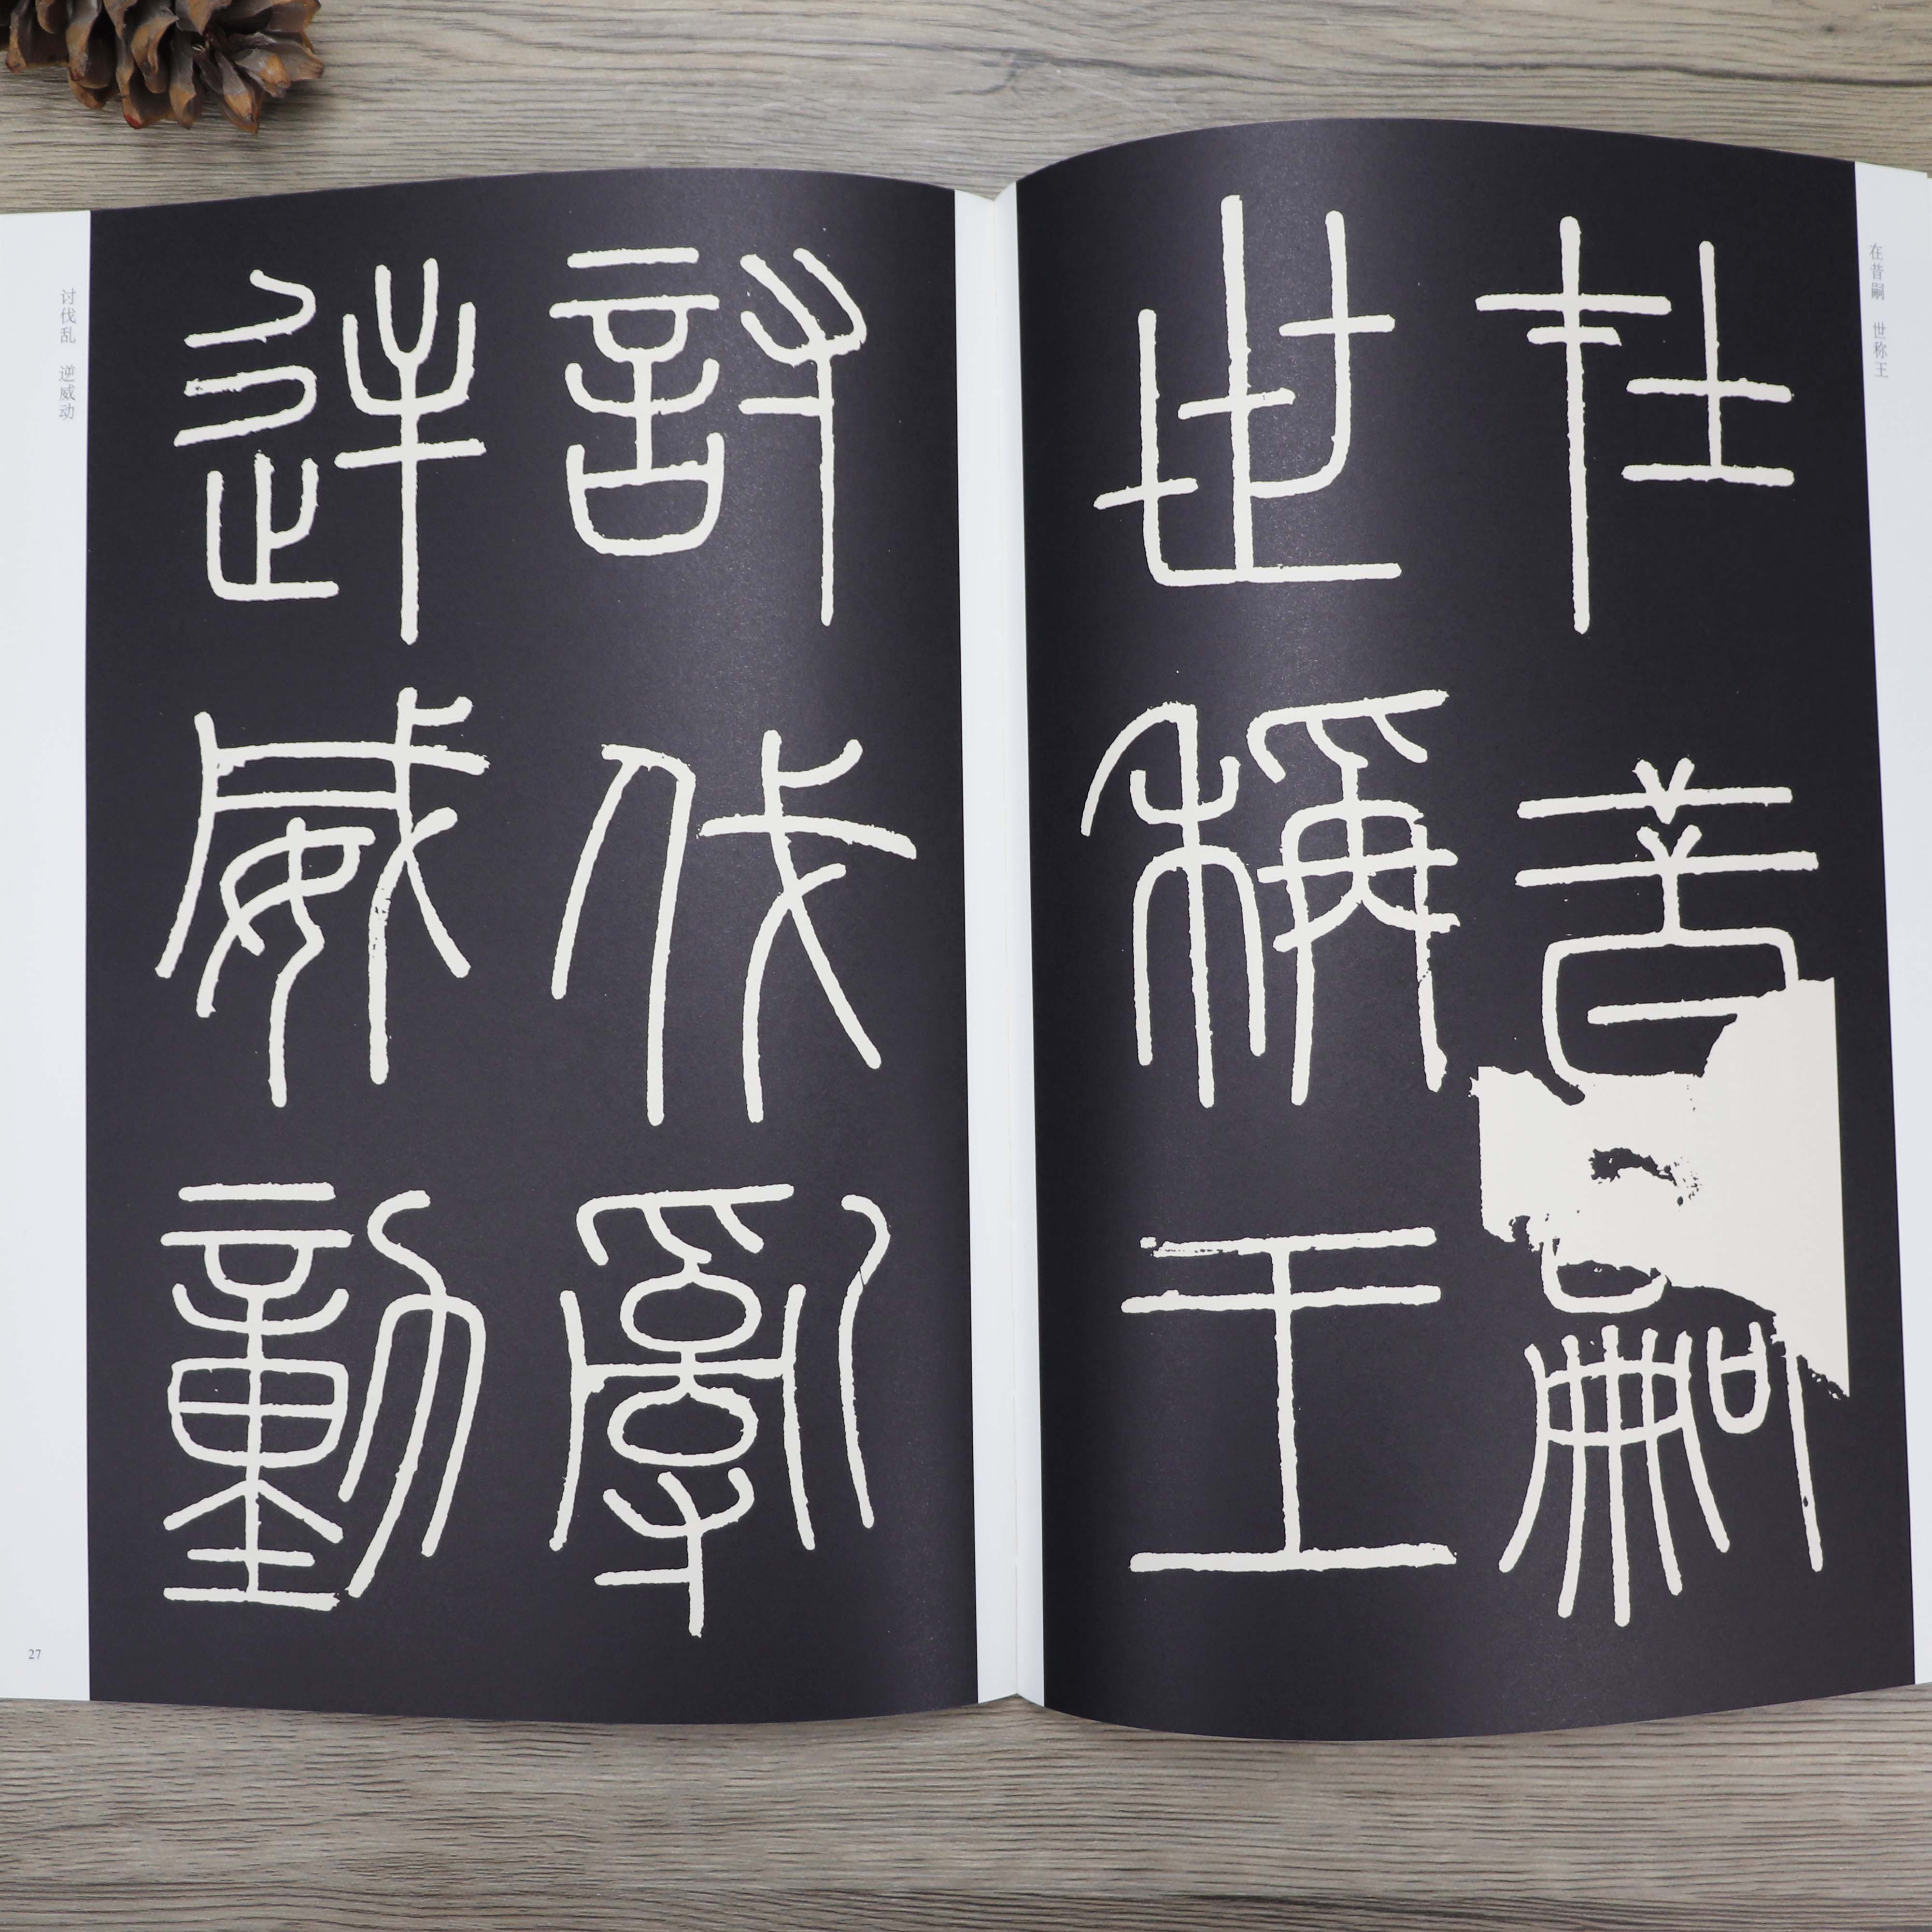 在昔嗣
世稱王
討伐亂
逆威動
在昔嗣 世称王
讨伐乱 逆威动
27